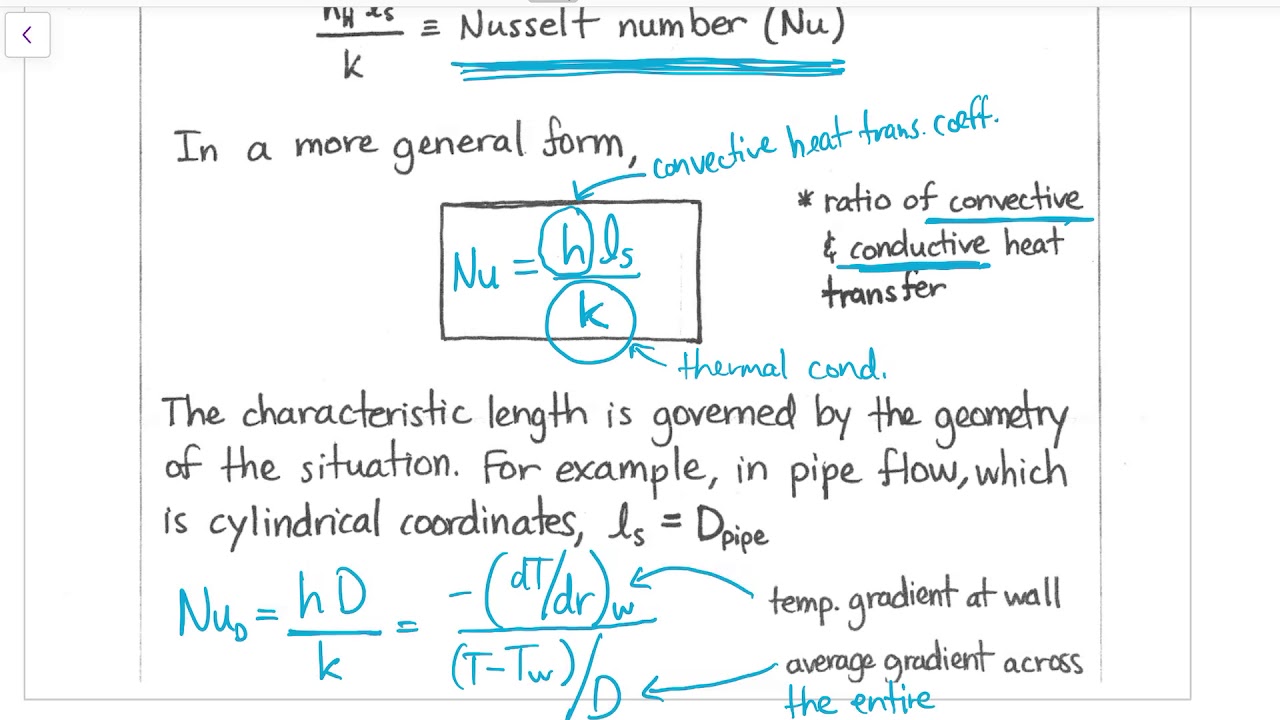 h_H l_s / k ≡ Nusselt number (Nu)
In a more general form,
convective heat trans. coeff.
Nu = h l_s / k
* ratio of convective
& conductive heat
transfer
thermal cond.
The characteristic length is governed by the geometry
of the situation. For example, in pipe flow, which
is cylindrical coordinates, l_s = D_pipe
Nu_D = h D / k = -(dT/dr)_w / (T-T_w)/D
temp. gradient at wall
average gradient across
the entire